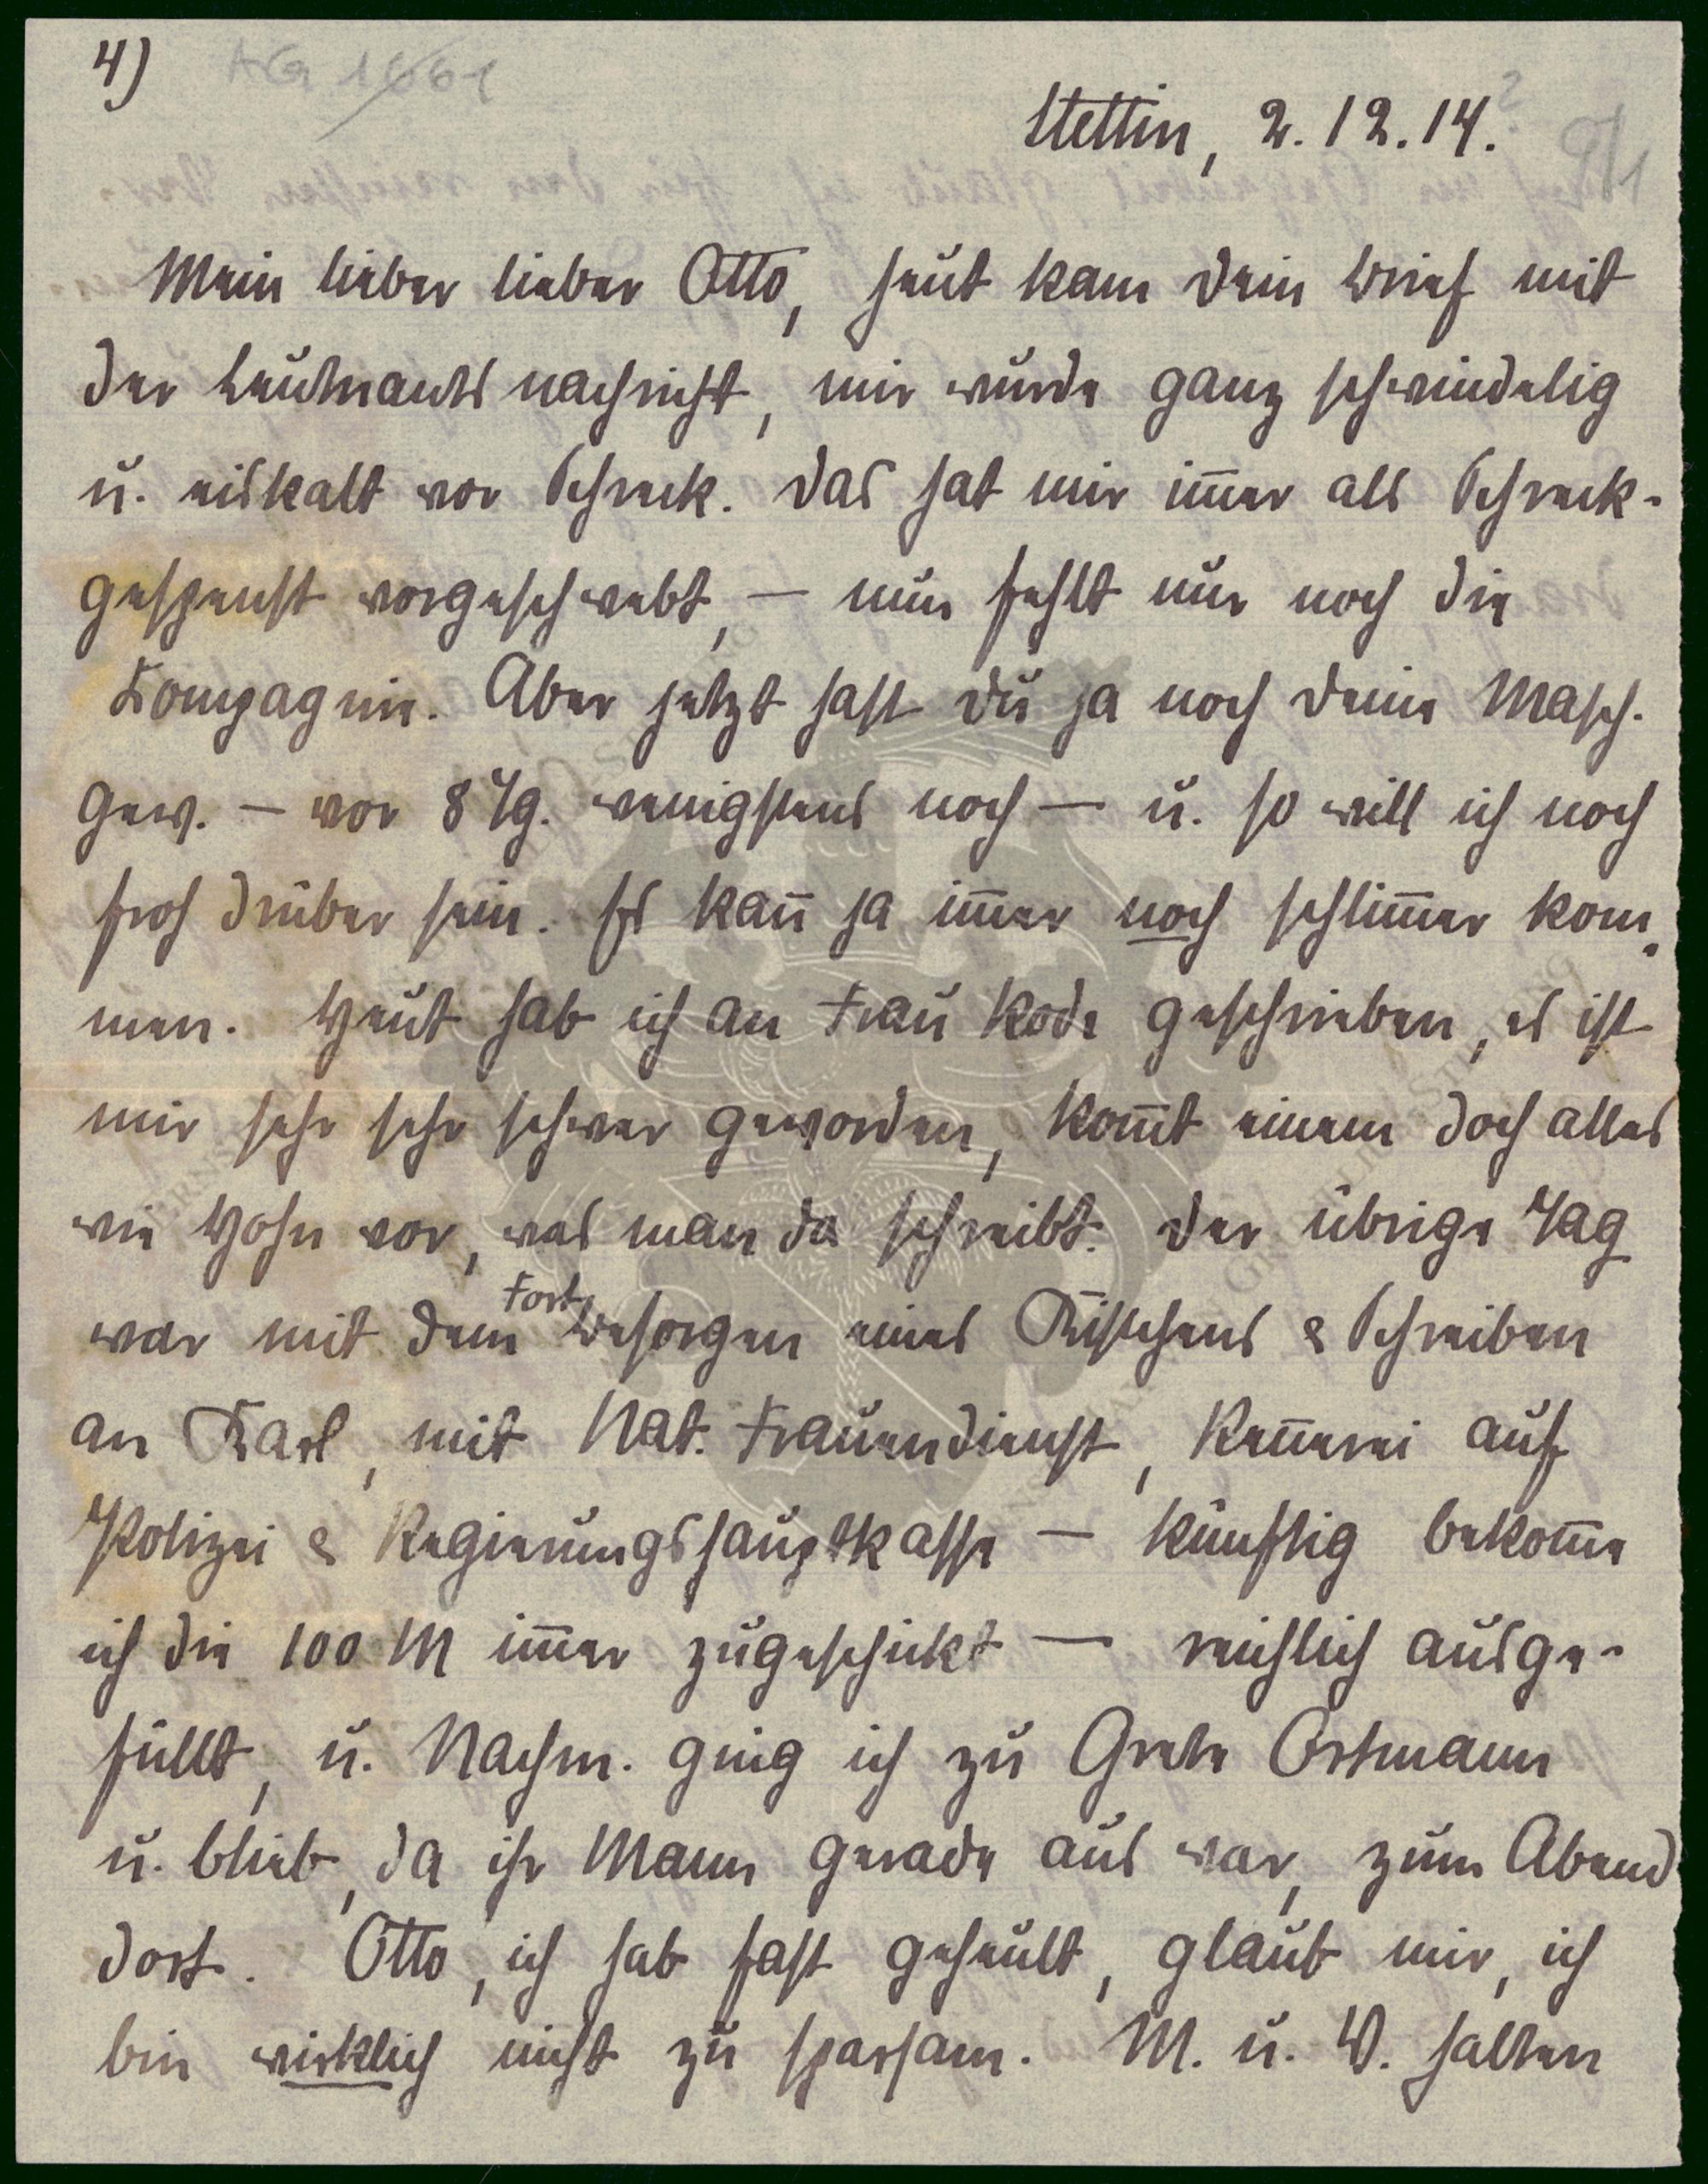 4)
Stettin, 2.12.14.
Mein lieber lieber Otto, heut kam Dein Brief mit
der Leutnantsnachricht, mir wurde ganz schwindelig
u. eiskalt vor Schreck. Das hat mir im̅er als Schreck-
gespenst vorgeschwebt, — nun fehlt nur noch die
Kompagnie. Aber jetzt hast Du ja noch Deine Masch.
Gew. — vor 8 Tg. wenigstens noch — u. so will ich noch
froh drüber sein. Es kan̅ ja im̅er noch schlim̅er kom-
men. Heut hab ich an Frau Rode geschrieben, es ist
mir sehr sehr schwer geworden, kom̅t einem doch alles
wie Hohn vor, was man da schreibt. Der übrige Tag
war mit dem Fort
Besorgen eines Kistchens & Schreiben
an Karl, mit Nat. Frauendienst, Ren̅erei auf
Polizei & Regierungshauptkasse — künftig bekom̅e
ich die 100 M im̅er zugeschickt — reichlich ausge-
füllt, u. Nachm. ging ich zu Grete Ostmann
u. blieb, da ihr Mann gerade aus war, zum Abend
dort. Otto, ich hab fast geheult, glaub mir, ich
bin wirklich nicht zu sparsam. M. u. V. halten